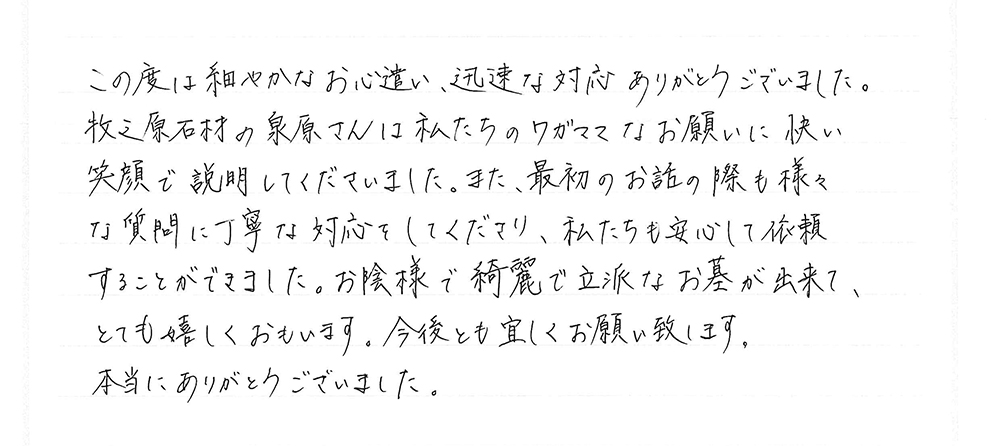 この度は細やかなお心遣い、迅速な対応ありがとうございました。
牧之原石材の泉原さんは私たちのワガママなお願いに快い
笑顔で説明してくださいました。また、最初のお話の際も様々
な質問に丁寧な対応をしてくださり、私たちも安心して依頼
することができました。お陰様で綺麗で立派なお墓が出来て、
とても嬉しくおもいます。今後とも宜しくお願い致します。
本当にありがとうございました。